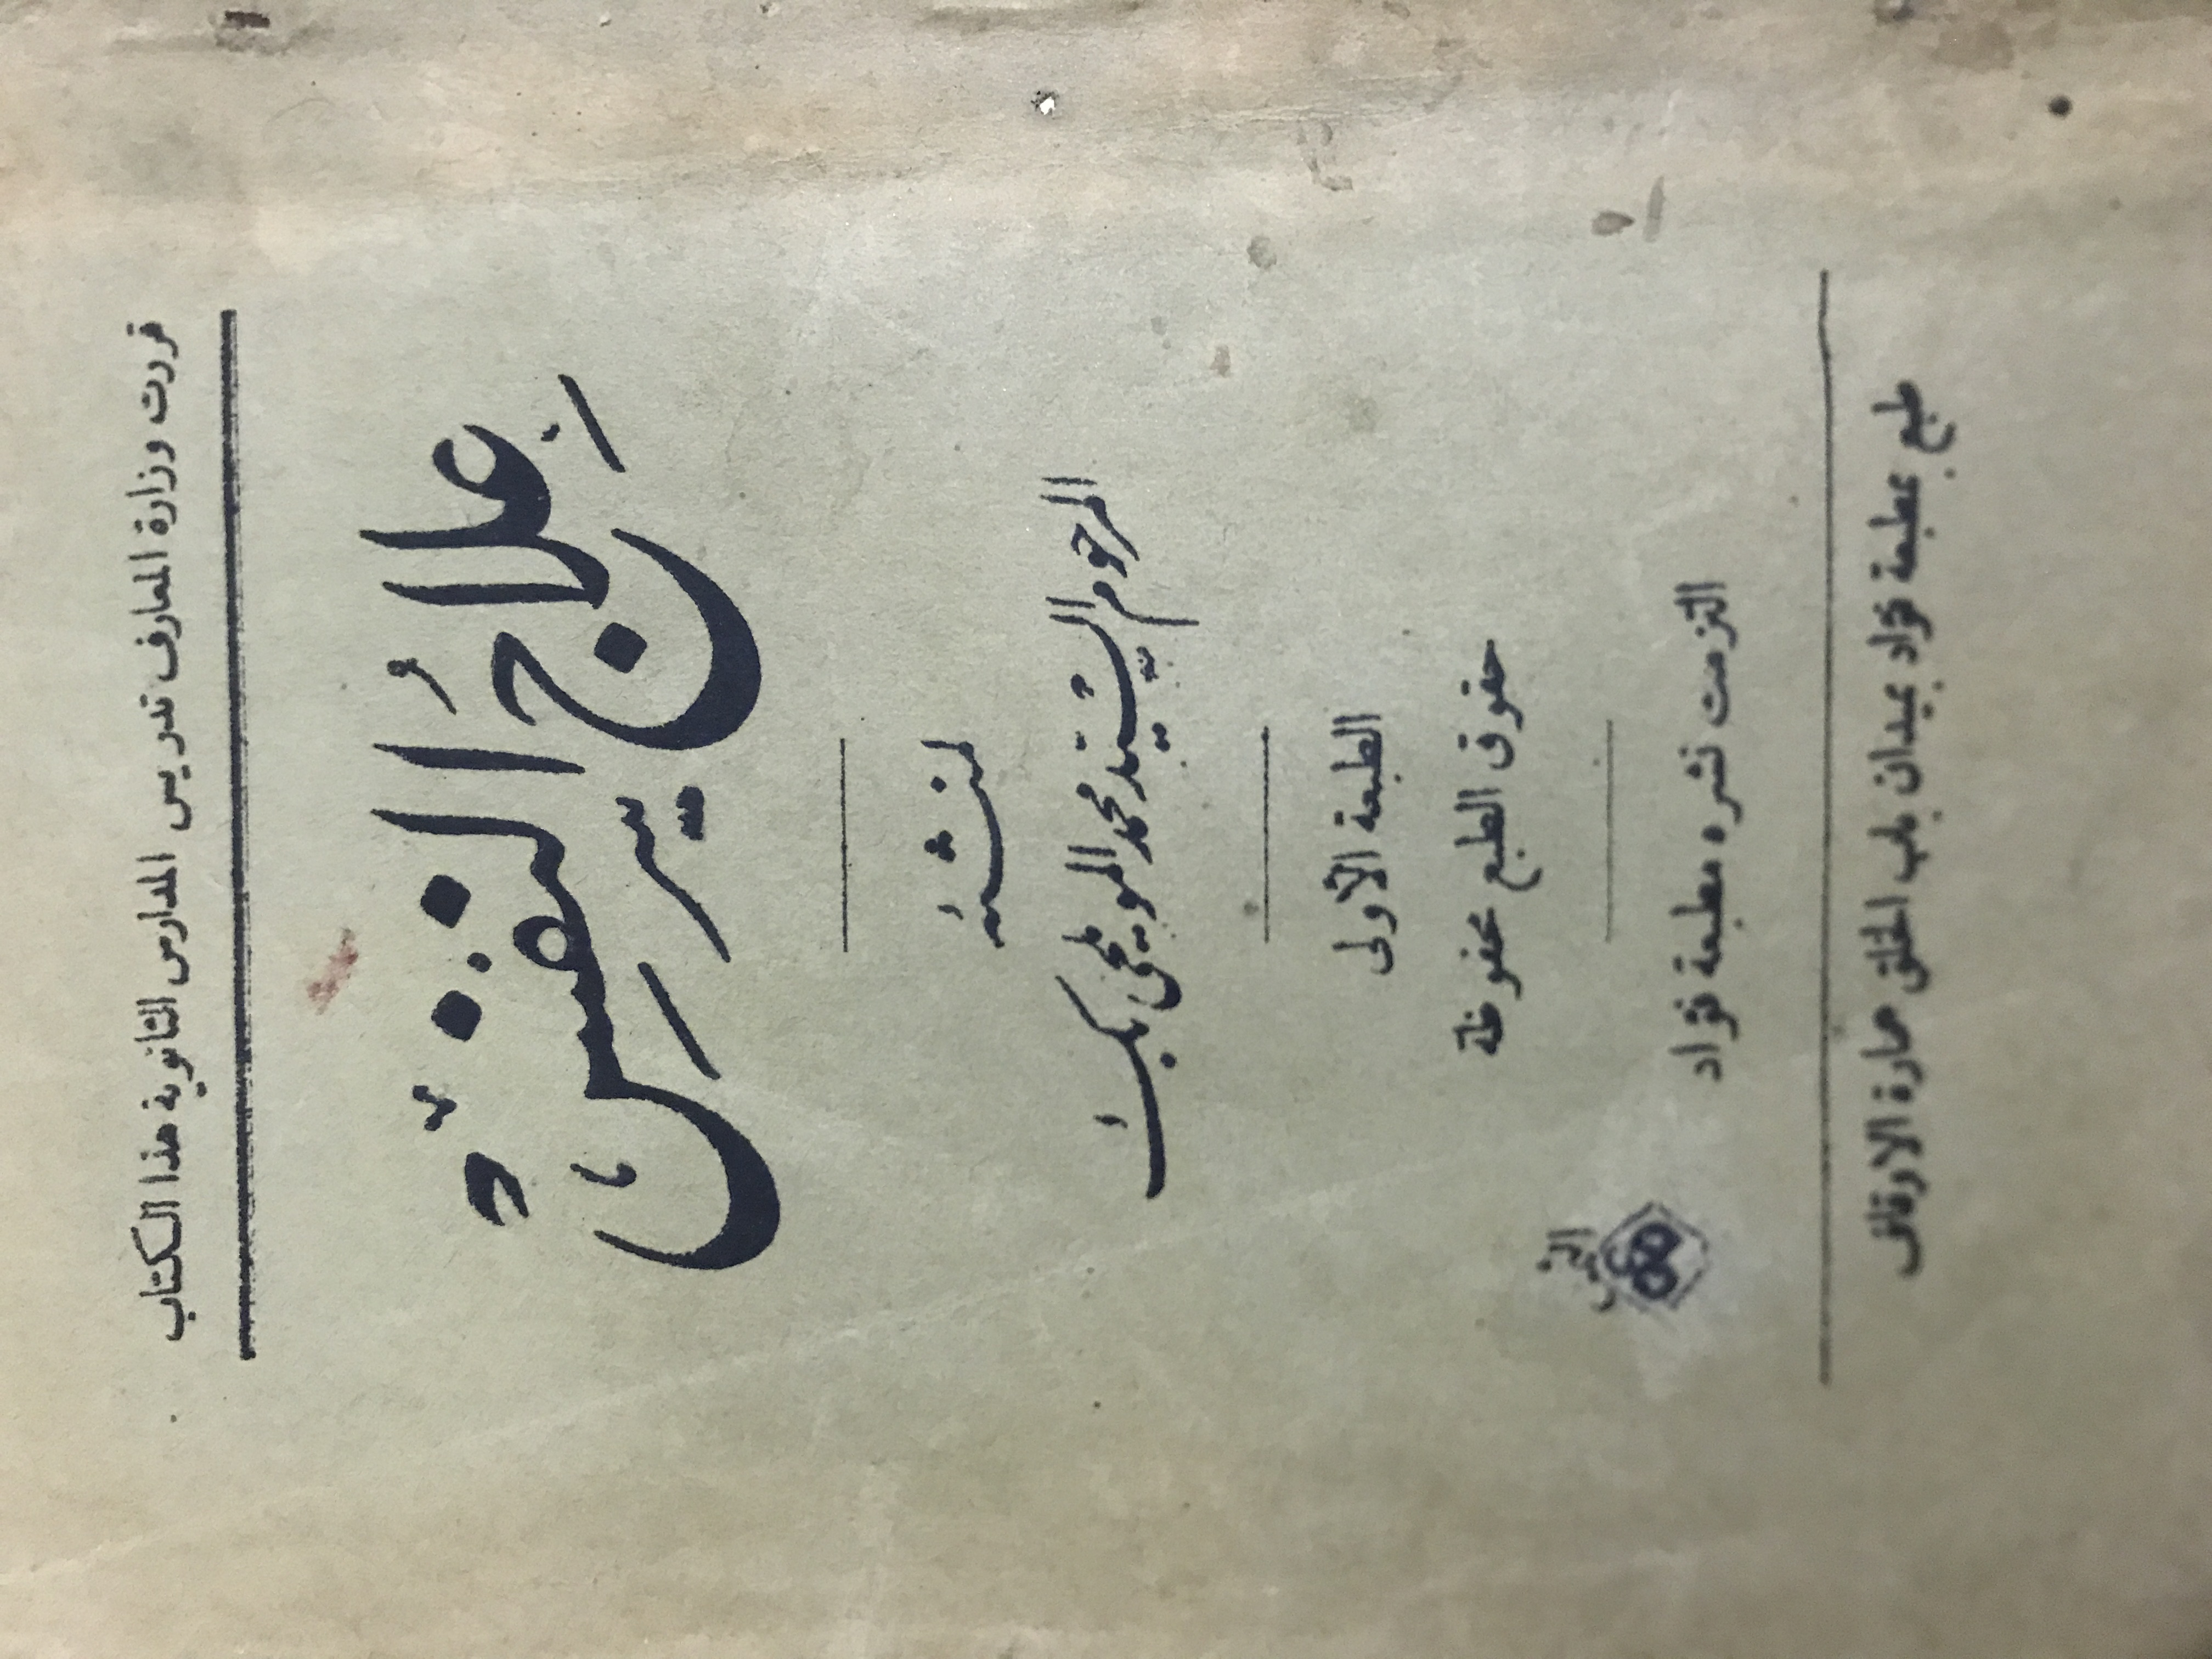 قررت وزارة المعارف تدريس المدارس الثانوية هذا الكتاب
علاج النفس
لمنشئه
المرحوم السيد محمد المويلحى بك
الطبعة الأولى
حقوق الطبع محفوظة
التزمت نشره مطبعة فؤاد
الثمن
طبع بمطبعة فؤاد بميدان باب الخلق حارة الارقائى